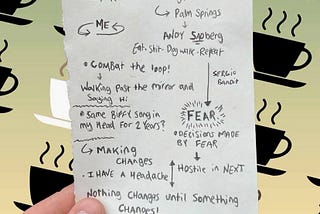 Palm Springs
ME
Andy Samberg
Eat-Shit-Dog walk-Repeat
Combat the loop!
Walking Past the mirror and
Saying Hi
SERGIO
Bandit
Same Biffy Song in
my Head For 2 Years?
FEAR
Decisions MADE
BY FEAR
MAKING
CHANGES
I HAVE A Headache
Hostile in NEXT
Nothing Changes until Something
CHANGES!